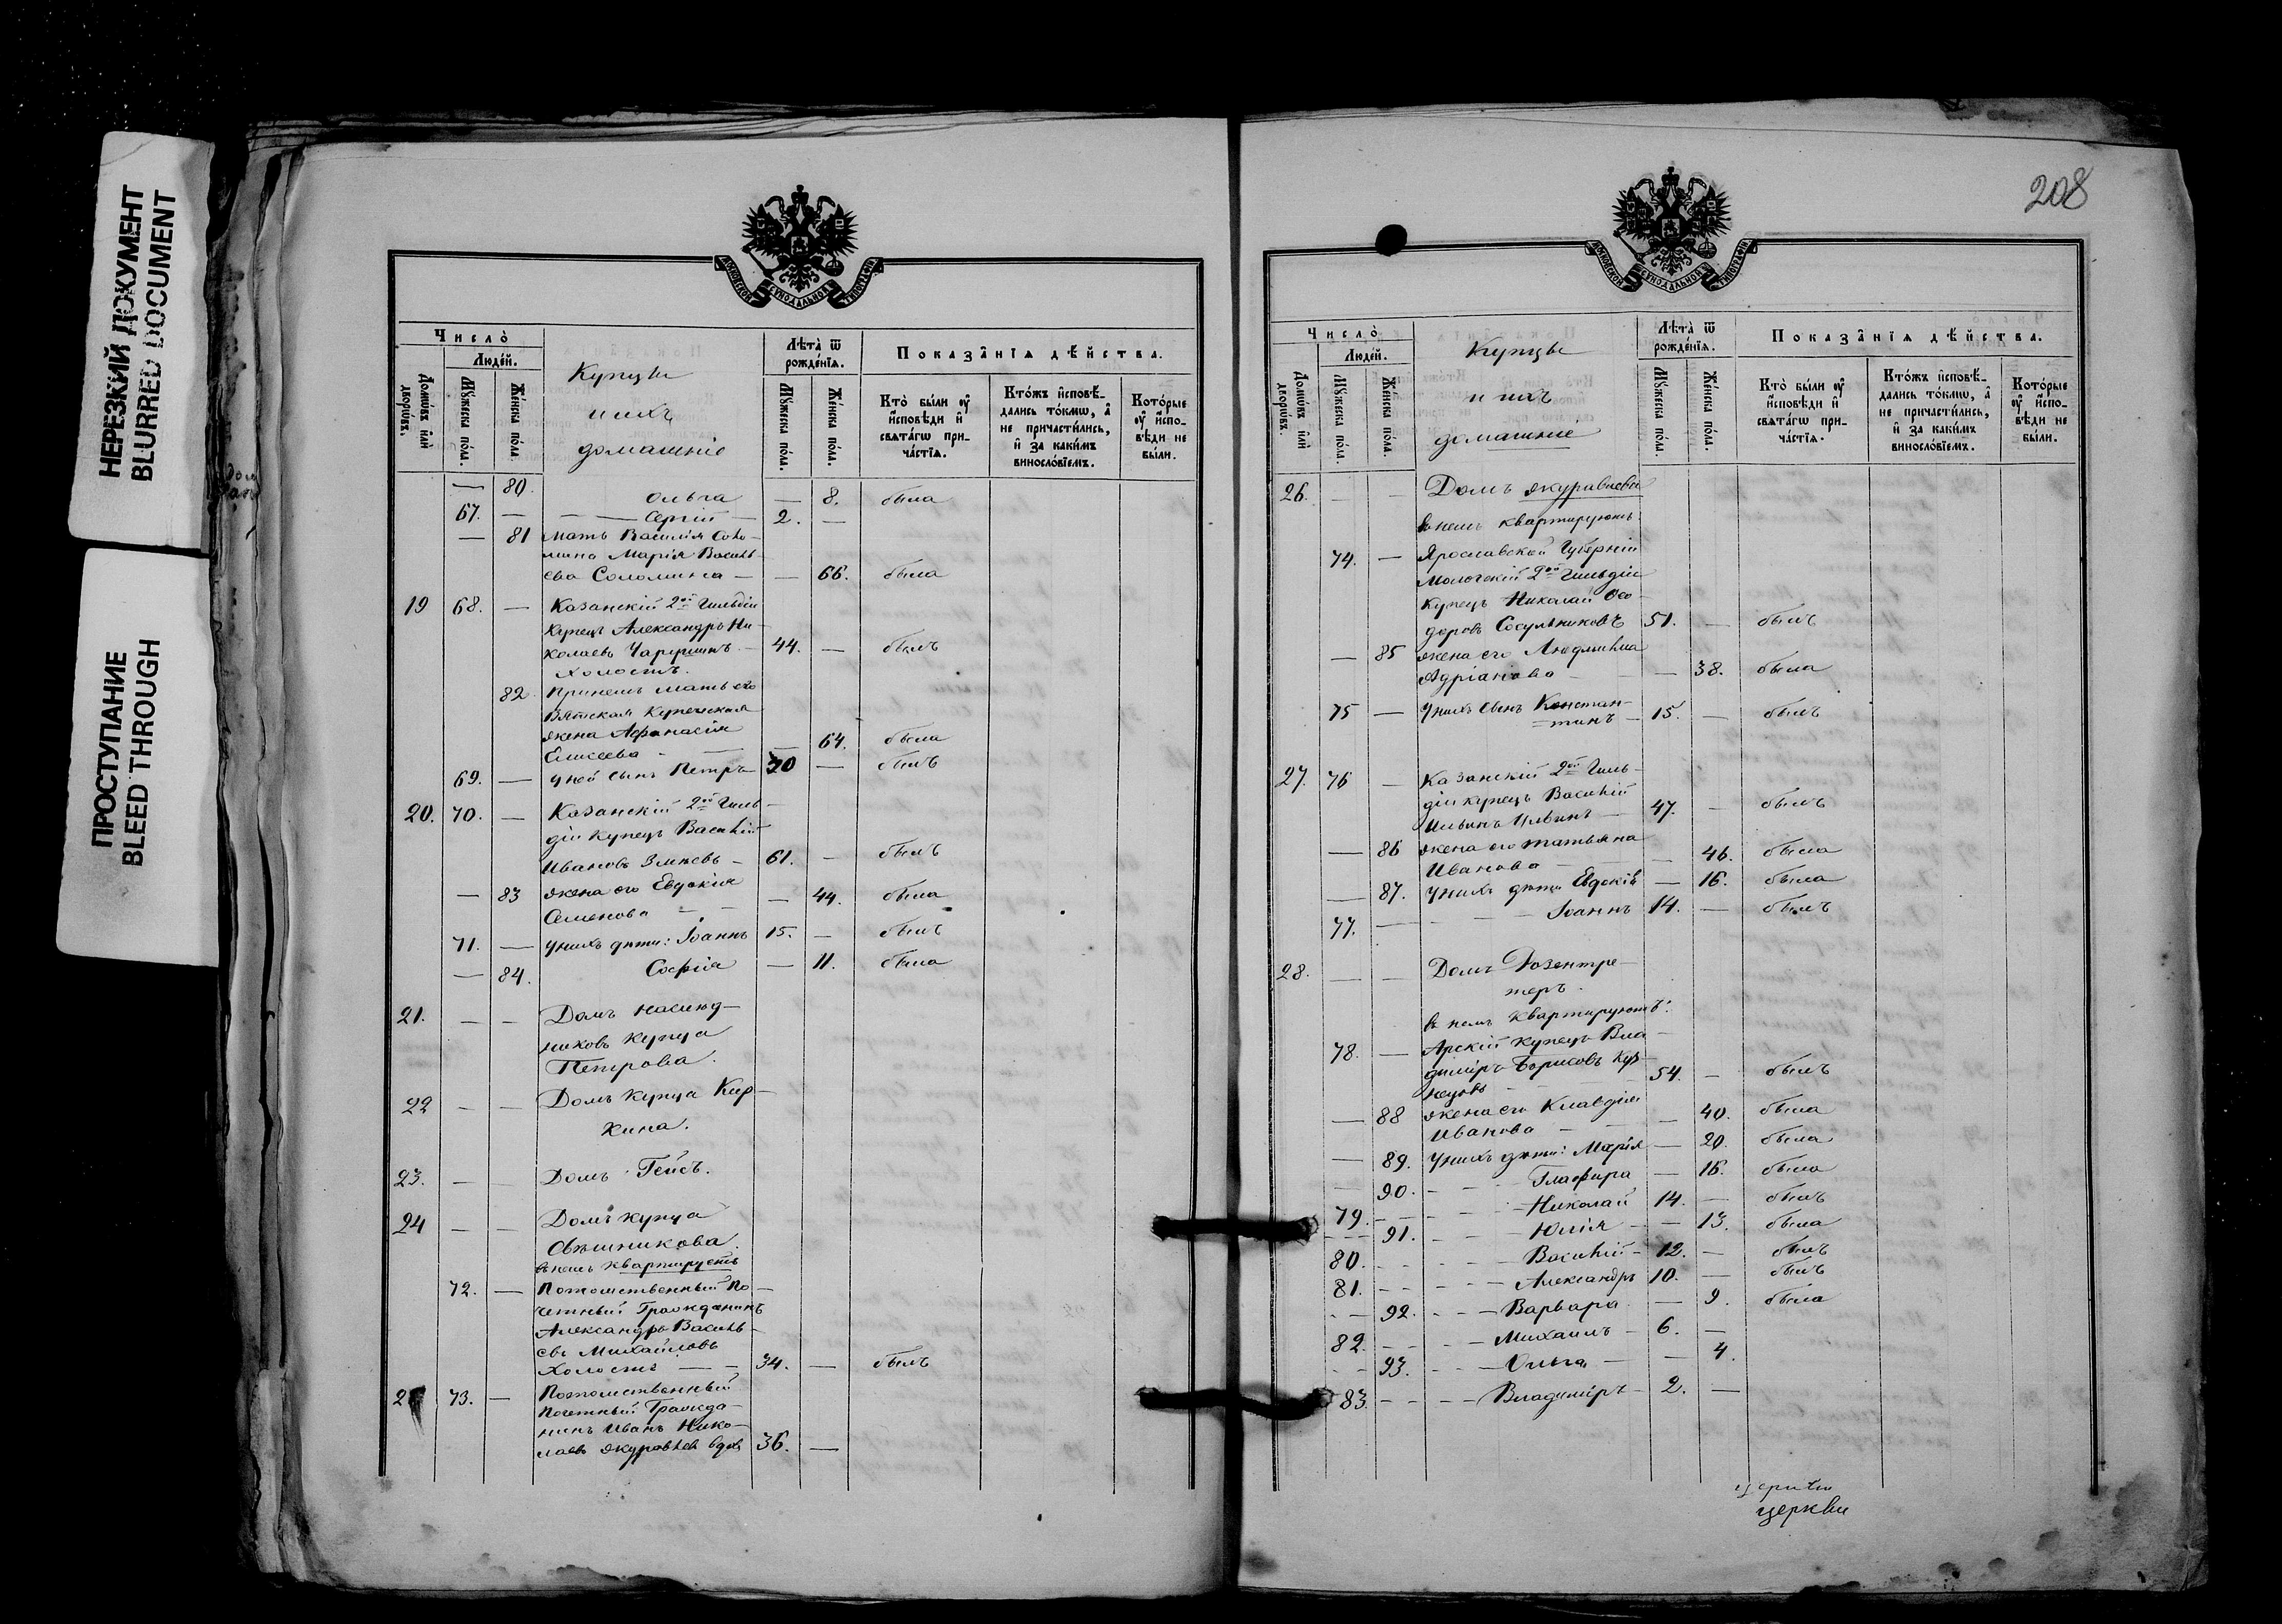 НЕРЕЗКИЙ ДОКУМЕНТ
BLURRED DOCUMENT
ПРОСТУПАНИЕ
BLEED THROUGH
МОСКОВСКОЙ СѴНОДАЛЬНОЙ ТИПОГРАФІИ
Число̀
Людéй.
Домѡ́въ и҆лѝ дворѡ́въ.
Мꙋ́жеска по́ла.
Же́нска по́ла.
Купцы
и ихъ
домашніе
Лѣта̀ ѿ рожде́нїѧ.
Мꙋ́жеска по́ла.
Же́нска по́ла.
Показа̑нїѧ дѣ́йства.
Кто̀ бы́ли ᲂу҆ и҆сповѣди и҆ свѧта́гѡ при-ча́стїѧ.
Кто́жъ и҆сповѣ-дались то́кмѡ, а҆ не причасти́лись, и҆ за каки́мъ винословїемъ.
Кото́рые ᲂу҆ и҆спо-вѣди не бы́ли.
— 80. Ольга — 8. была
67. — Сергій — 2. —
— 81 Мать Василія Соло-
мина Марія Василь-
ева Соломина — — 66. была
19 68. — Казанскій 2ой Гильдіи
купецъ Александръ Ни-
колаевъ Чарушинъ — 44. — былъ
холостъ.
82. При немъ мать его
Вятская купеческая
жена Афанасія
Елисеева — — 64. была
69. — У ней сынъ Петръ 30 — былъ
20. 70. — Казанскій 2ой Гиль-
діи купецъ Василій
Ивановъ Змѣевъ — 61. — былъ
— 83 жена его Евдокія
Семенова — — 44. была
71. — У нихъ дѣти: Іоаннъ 15. — былъ
— 84. Софія — 11. была
21. — — Домъ наслѣд-
никовъ купца
Петрова.
22 — — Домъ купца Кир-
кина.
23. — — Домъ Гейсъ.
24 — — Домъ купца
Свѣшникова.
въ немъ квартируетъ
72. — Потомственный По-
четный Гражданинъ
Александръ Василь-
евъ Михайловъ
Холостъ — — 34. — былъ
25 73. — Потомственный
Почетный Гражда-
нинъ Иванъ Нико-
лаевъ Журавлев вдов 36. —
208
МОСКОВСКОЙ СѴНОДАЛЬНОЙ ТИПОГРАФІИ
Число̀
Людéй.
Домѡ́въ и҆лѝ дворѡ́въ.
Мꙋ́жеска по́ла.
Же́нска по́ла.
Купцы
и ихъ
домашніе
Лѣта̀ ѿ рожде́нїѧ.
Мꙋ́жеска по́ла.
Же́нска по́ла.
Показа̑нїѧ дѣ́йства.
Кто̀ бы́ли ᲂу҆ и҆сповѣди и҆ свѧта́гѡ при-ча́стїѧ.
Кто́жъ и҆сповѣ-дались то́кмѡ, а҆ не причасти́лись, и҆ за каки́мъ винословїемъ.
Кото́рые ᲂу҆ и҆спо-вѣди не бы́ли.
26. — — Домъ Журавлева
въ немъ квартируютъ:
74. — Ярославской Губерніи
Мологскій 2ой Гильдіи
купецъ Николай Ѳео-
доровъ Сосульниковъ 51. — былъ
— 85 жена его Людмила
Адріанова — — 38. была
75 — У нихъ сынъ Констан-
тинъ — 15. — былъ
27. 76 — Казанскій 2ой Гиль-
діи купецъ Василій
Ильинъ Ильинъ — 47. — былъ
— 86 жена его Татьяна
Иванова — — 46. была
— 87. У нихъ дѣти Евдокія — 16. была
77. — — Іоаннъ 14. — былъ
28. — — Домъ Розентре-
теръ.
въ немъ квартируютъ:
78. — Арскій купецъ Вла-
диміръ Борисовъ Куз-
нецовъ 54. — былъ
— 88 жена его Клавдія
Иванова — — 40. была
— 89. У нихъ дѣти: Марія — 20. была
— 90. — Глафира — 16. была
79. — Николай 14. — былъ
— 91. — Юлія — 13. была
80. — Василій — 12. — былъ
81. — Александръ 10. — былъ
— 92. — Варвара. — 9. была
82. — Михаилъ — 6. —
— 93. — Ольга — — 4.
83. — Владиміръ — 2. —
церкви
церкви